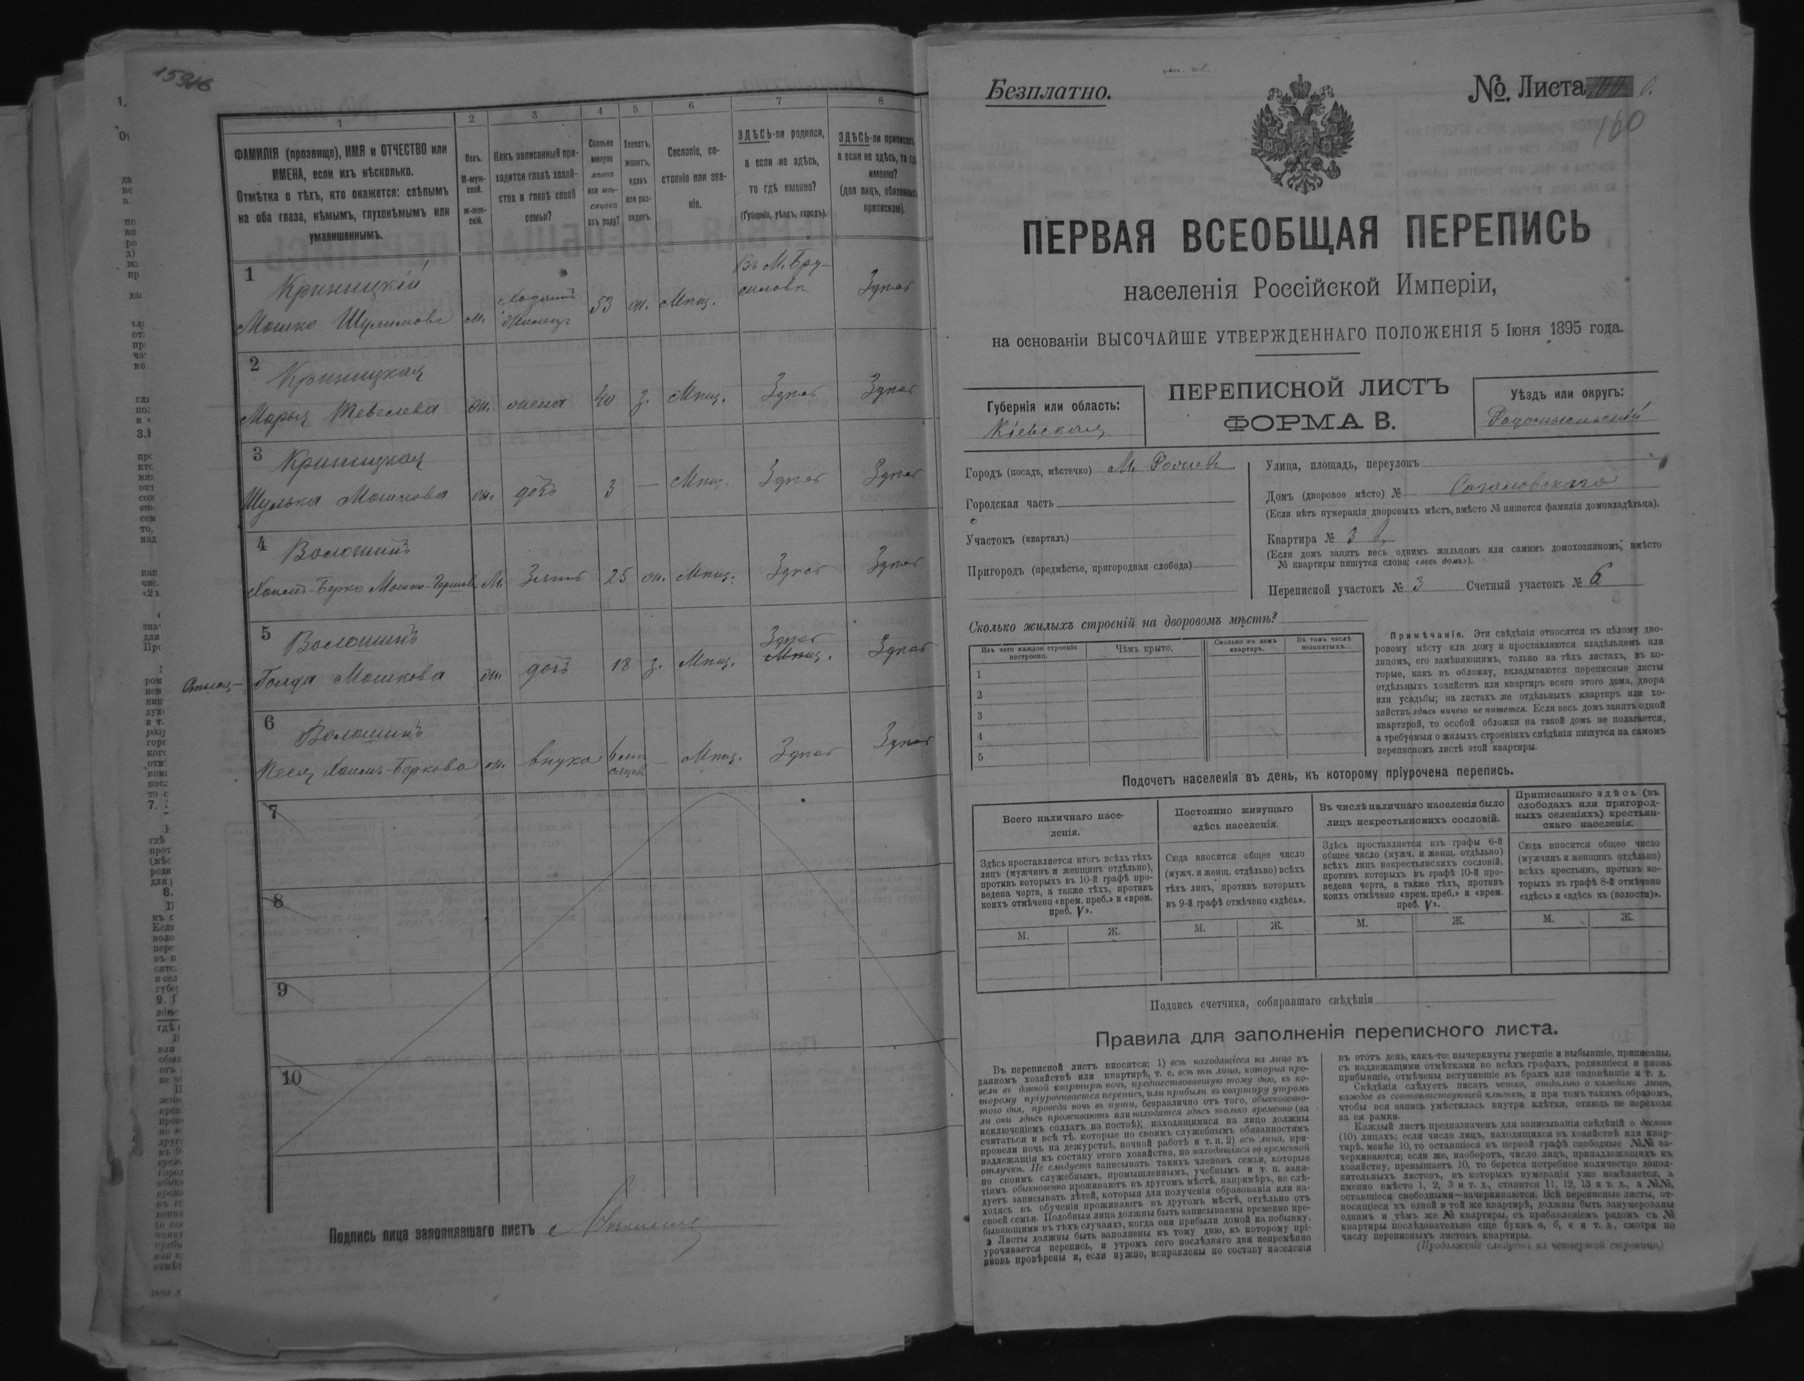 1
2
3
4
5
6
7
8
ФАМИЛІЯ (прозвище), ИМЯ и ОТЧЕСТВО или
ИМЕНА, если ихъ нѣсколько.
Отмѣтка о тѣхъ, кто окажется: слѣпымъ
на оба глаза, нѣмымъ, глухонѣмымъ или
умалишеннымъ.
Полъ.
Какъ записанный при-
ходится главѣ хозяй-
ства и главѣ своей
семьи?
Сколько
минуло
лѣтъ
или мѣ-
сяцевъ
отъ роду?
Холостъ,
женатъ,
вдовъ
или раз-
веденъ.
Сословіе, со-
стояніе или зва-
ніе.
ЗДѢСЬ-ли родился,
а если не здѣсь,
то гдѣ именно?
(Губернія, уѣздъ, городъ).
ЗДѢСЬ-ли приписанъ,
а если не здѣсь, то гдѣ
именно?
(для лицъ, обязанныхъ
припискою).
1 Криницкій
Мошко Шулимовъ м. 53 ж. Мѣщ. Въ М. Бру-
силовѣ Здѣсь
2 Криницкая
Марья Тевелева ж. жена 40 з. Мѣщ. Здѣсь Здѣсь
3 Криницкая
Шулька Мошкова ж. дочь 3 — Мѣщ. Здѣсь Здѣсь
4 Волошинъ
Хаимъ-Берко Мошко-Гершовъ м. Зять 25 ж. Мѣщ. Здѣсь Здѣсь
5 Волошинъ
Голда Мошкова ж. дочь 18 з. Мѣщ. Здѣсь Мѣщ. Здѣсь
6 Волошинъ
Песя Хаимъ-Беркова ж. внука 6 — Мѣщ. Здѣсь Здѣсь
7
8
9
10
Подпись лица заполнявшаго листъ
Безплатно.
№ Листа
160
ПЕРВАЯ ВСЕОБЩАЯ ПЕРЕПИСЬ
населенія Россійской Имперіи,
на основаніи ВЫСОЧАЙШЕ УТВЕРЖДЕННАГО ПОЛОЖЕНІЯ 5 Іюня 1895 года.
Губернія или область:
Кіевская
ПЕРЕПИСНОЙ ЛИСТЪ
ФОРМА В.
Уѣздъ или округъ:
Радомысльскій
Городъ (посадъ, мѣстечко) М.
Городская часть
Участокъ (кварталъ)
Пригородъ (предмѣстье, пригородная слобода)
Улица, площадь, переулокъ
Домъ (дворовое мѣсто) №
(Если нѣтъ нумераціи дворовыхъ мѣстъ, вмѣсто № пишется фамилія домовладѣльца).
Квартира № 3
(Если домъ занятъ весь однимъ жильцомъ или самимъ домохозяиномъ, вмѣсто
№ квартиры пишутся слова: «весь домъ»).
Переписной участокъ № 3 Счетный участокъ № 6
Сколько жилыхъ строеній на дворовомъ мѣстѣ?
Изъ чего каждое строеніе
построено.
Чѣмъ крыто.
Сколько въ немъ
квартиръ.
Въ томъ числѣ
незанятыхъ.
1
2
3
4
5
Примѣчаніе. Эти свѣдѣнія относятся къ цѣлому дво-
ровому мѣсту или дому и проставляются владѣльцемъ или
лицомъ, его замѣняющимъ, только на тѣхъ листахъ, въ ко-
торые, какъ въ обложку, вкладываются переписные листы
отдѣльныхъ хозяйствъ или квартиръ всего этого дома, двора
или усадьбы; на листахъ же отдѣльныхъ квартиръ или хо-
зяйствъ здѣсь ничего не пишется. Если весь домъ занятъ одной
квартирой, то особой обложки на такой домъ не полагается,
а требуемыя о жилыхъ строеніяхъ свѣдѣнія пишутся на самомъ
переписномъ листѣ этой квартиры.
Подсчетъ населенія въ день, къ которому пріурочена перепись.
Всего наличнаго насе-
ленія.
Здѣсь проставляется итогъ всѣхъ тѣхъ
лицъ (мужчинъ и женщинъ отдѣльно),
противъ которыхъ въ 10-й графѣ про-
ведена черта, а также тѣхъ, противъ
коихъ отмѣчено «врем. преб.» и «врем.
преб. V».
Постоянно живущаго
здѣсь населенія.
Сюда вносится общее число
(мужч. и женщ. отдѣльно) всѣхъ
тѣхъ лицъ, противъ которыхъ
въ 9-й графѣ отмѣчено «здѣсь».
Въ числѣ наличнаго населенія было
лицъ некрестьянскихъ сословій.
Здѣсь проставляется изъ графы 6-й
общее число (мужч. и женщ. отдѣльно)
всѣхъ лицъ некрестьянскихъ сословій,
противъ которыхъ въ графѣ 10-й про-
ведена черта, а также тѣхъ, противъ
коихъ отмѣчено «врем. преб.» и «врем.
преб. V».
Приписаннаго здѣсь (въ
слободахъ или пригород-
ныхъ селеніяхъ) крестьян-
скаго населенія.
Сюда вносится общее число
(мужчинъ и женщинъ отдѣльно)
всѣхъ крестьянъ, противъ ко-
торыхъ въ графѣ 8-й отмѣчено
«здѣсь» и «здѣсь къ (волости)».
М. Ж. М. Ж. М. Ж. М. Ж.
Подпись счетчика, собиравшаго свѣдѣнія
Правила для заполненія переписного листа.
Въ переписной листъ вносятся: 1) всѣ находящіеся на лицо въ
данномъ хозяйствѣ или квартирѣ, т. е. всѣ тѣ лица, которыя про-
вели въ данной квартирѣ ночь, предшествовавшую тому дню, къ ко-
торому пріурочивается перепись, или прибыли въ квартиру утромъ
того дня, проведя ночь въ пути, безразлично отъ того, обыкновенно-
ли они здѣсь проживаютъ или находятся здѣсь только временно (за
исключеніемъ солдатъ на постоѣ); находящимися на лицо должны
считаться и всѣ тѣ, которые по своимъ служебнымъ обязанностямъ
провели ночь на дежурствѣ, ночной работѣ и т. п. 2) всѣ лица, при-
надлежащія къ составу этого хозяйства, но находящіяся во временной
отлучкѣ. Не слѣдуетъ записывать такихъ членовъ семьи, которые
по своимъ служебнымъ, промышленнымъ, учебнымъ и т. п. заня-
тіямъ обыкновенно проживаютъ въ другомъ мѣстѣ, напримѣръ, не слѣ-
дуетъ записывать дѣтей, которыя для полученія образованія или на-
ходясь въ обученіи проживаютъ въ другомъ мѣстѣ, отдѣльно отъ
своей семьи. Подобныя лица должны быть записываемы временно пре-
бывающими въ тѣхъ случаяхъ, когда они прибыли домой на побывку.
Листы должны быть заполнены къ тому дню, къ которому прі-
урочивается перепись, и утромъ сего послѣдняго дня непремѣнно
вновь провѣрены и, если нужно, исправлены по составу населенія
въ этотъ день, какъ-то: вычеркнуты умершіе и выбывшіе, приписаны,
съ надлежащими отмѣтками во всѣхъ графахъ, родившіеся и вновь
прибывшіе, отмѣчены вступившіе въ бракъ или овдовѣвшіе и т. д.
Свѣдѣнія слѣдуетъ писать четко, отдѣльно о каждомъ лицѣ,
каждое въ соотвѣтствующей клѣткѣ, и при томъ такимъ образомъ,
чтобы вся запись умѣстилась внутри клѣтки, отнюдь не переходя
за ея рамки.
Каждый листъ предназначенъ для записыванія свѣдѣній о десяти
(10) лицахъ; если число лицъ, находящихся въ хозяйствѣ или квар-
тирѣ, менѣе 10, то оставшіеся въ первой графѣ свободные №№ за-
черкиваются; если же, наоборотъ, число лицъ, принадлежащихъ къ
хозяйству, превышаетъ 10, то берется потребное количество допол-
нительныхъ листовъ, въ которыхъ нумерація уже измѣняется, а
именно вмѣсто 1, 2, 3 и т. д., ставится 11, 12, 13 и т. д., а №№,
оставшіеся свободными—зачеркиваются. Всѣ переписные листы, от-
носящіеся къ одной и той же квартирѣ, должны быть занумерованы
однимъ и тѣмъ же № квартиры, съ прибавленіемъ рядомъ съ №
квартиры послѣдовательно еще буквъ а, б, в и т. д., смотря по
числу переписныхъ листовъ квартиры.
(Продолженіе слѣдуетъ на четвертой страницѣ.)